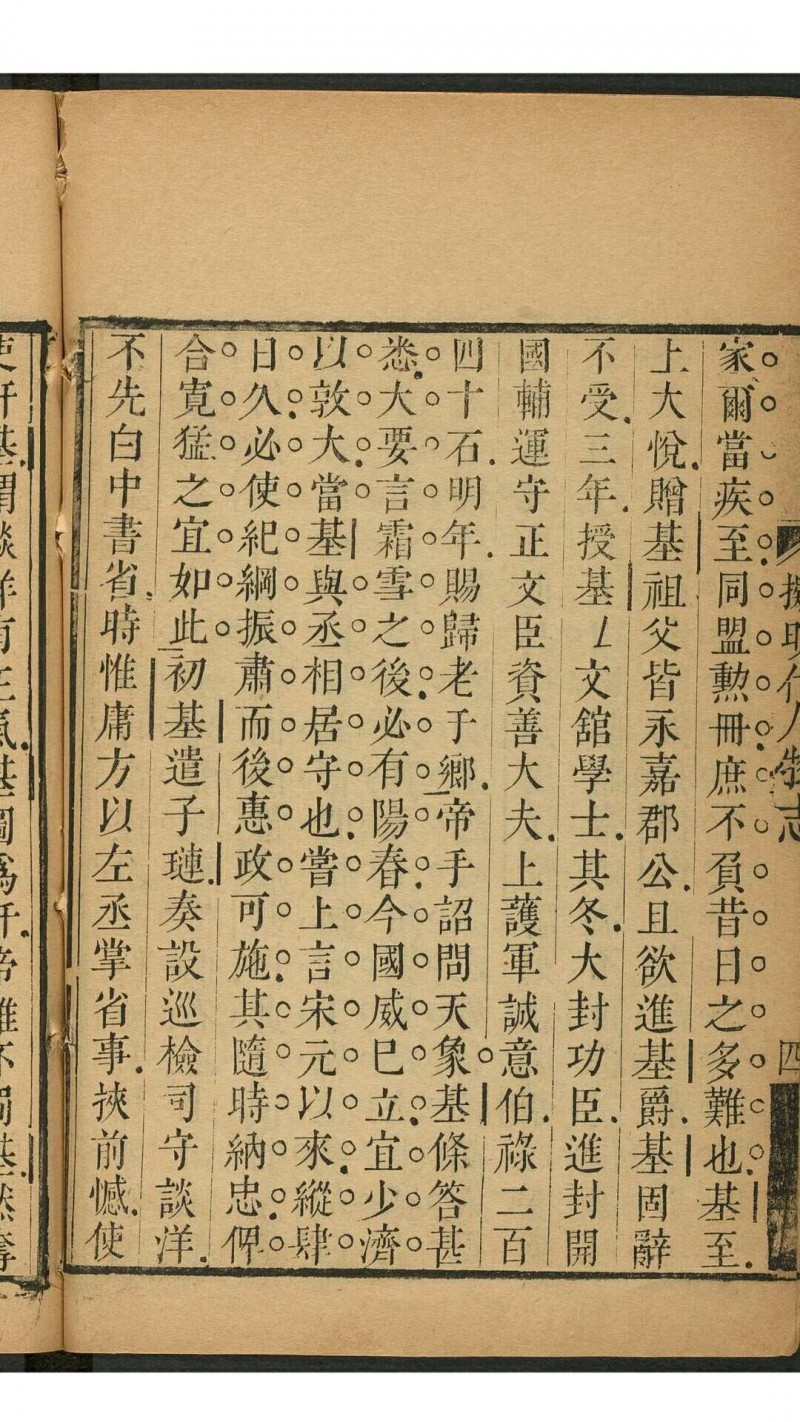 家爾當疾至同盟勲冊庶不負昔日之多難也基至
上大悅贈基祖父皆永嘉郡公且欲進基爵基固辭
不受三年授基文舘學士其冬大封功臣進封開
國輔運守正文臣資善大夫上護軍誠意伯祿二百
四十石明年賜歸老于鄉帝手詔問天象基條答甚
悉大要言霜雪之後必有陽春今國威巳立宜少濟
以敦大當基與丞相居守也嘗上言宋元以來縱肆
日久必使紀綱振肅而後惠政可施其隨時納忠俾
合寛猛之宜如此初基遣子璉奏設巡檢司守談洋
不先白中書省時惟庸方以左丞掌省事挾前憾使